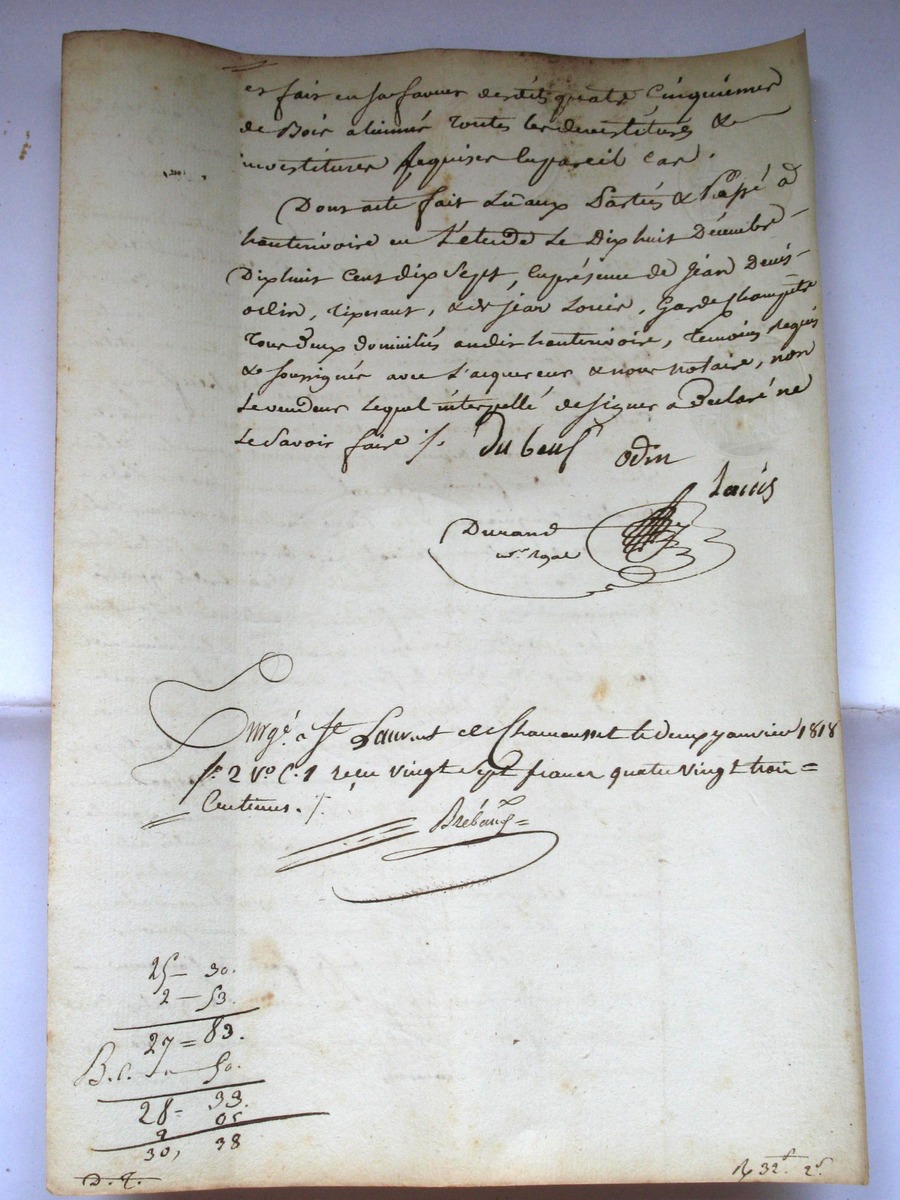 et fait en sa faveur desdits quatre Cinquiemes
de Bois aliénés toutes les devestitures &
investitures Requises en pareil Cas.
Dont acte fait & lu aux Parties & Passé à
hauterivoire en L'etude Le Dix huit Décembre
Dix huit Cent dix Sept, En présence de jean Denis
odin, tixerant, & de jean Louis, Garde Champetre
Tous Deux domiciliés audit hauterivoire, temoins Requis
& soussignés avec L'acquereur & nous notaire, non
Le vendeur Lequel interpellé de signer a Declaré ne
Le Savoir faire ./.
du beuf
odin
Louis
Durand
nre. royal
Enrgé. a St Laurent de Chamousset le deux janvier 1818
fo. 2 Vo C. 1 reçu vingt sept francs quatre vingt trois =
Centimes. ./.
25 — 30.
2 — 53.
27 = 83.
B.c. — 50.
28 - 33.
2 05
30, 38
D. 2.
32 2